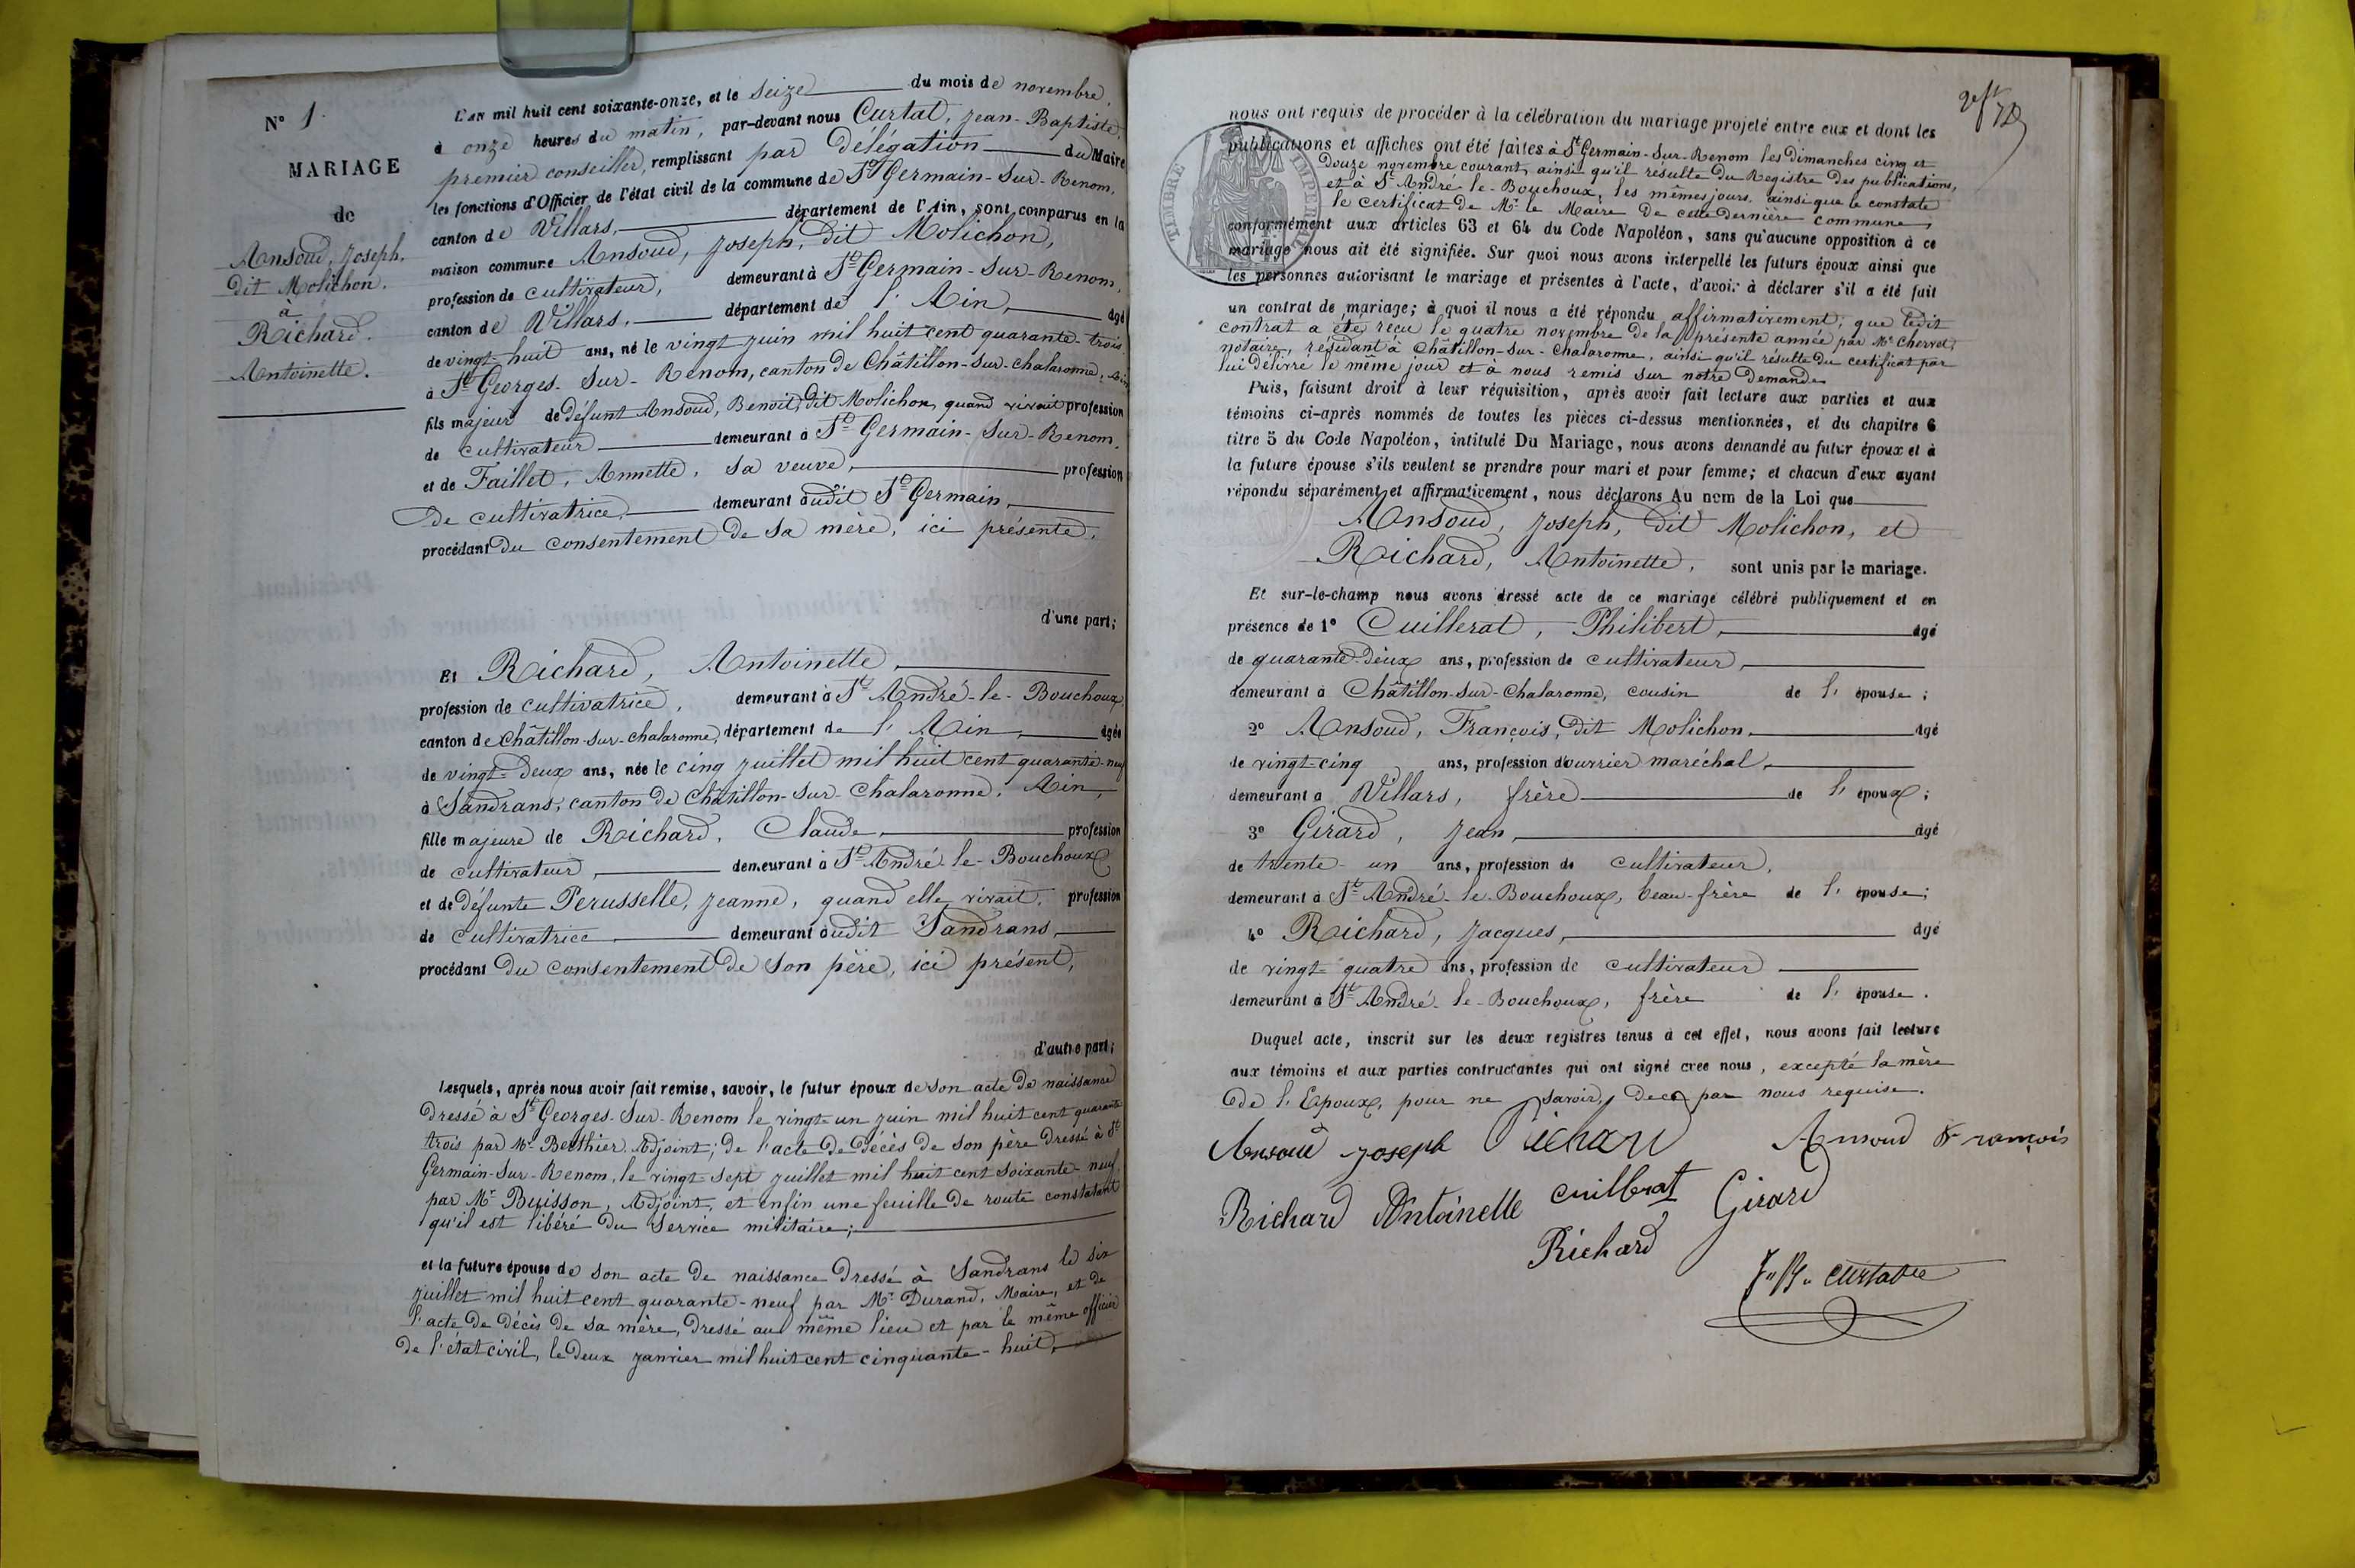 N° 1
MARIAGE
de
Ansoud, Joseph,
dit Molichon.
à
Richard.
Antoinette.
L'an mil huit cent soixante-onze, et le seize du mois de novembre,
à onze heures du matin, par-devant nous Curtat, Jean-Baptiste,
premier conseiller, remplissant par délégation du Maire
les fonctions d'Officier de l'état civil de la commune de St Germain-sur-Renom,
canton de Villars, département de l'Ain, sont comparus en la
maison commune Ansoud, Joseph, dit Molichon,
profession de cultivateur, demeurant à St Germain-sur-Renom,
canton de Villars, département de l'Ain, âgé
de vingt-huit ans, né le vingt juin mil huit cent quarante-trois
à St Georges-sur-Renom, canton de Châtillon-sur-Chalaronne, Ain
fils majeur de défunt Ansoud, Benoît, dit Molichon, quand vivait profession
de cultivateur demeurant à St Germain-sur-Renom,
et de Faillet, Annette, sa veuve, profession
de cultivatrice, demeurant audit St Germain,
procédant du consentement de sa mère, ici présente,
d'une part;
Et Richard, Antoinette,
profession de cultivatrice, demeurant à St André-le-Bouchoux
canton de Châtillon-sur-Chalaronne, département de l'Ain, âgée
de vingt-deux ans, née le cinq juillet mil huit cent quarante-neuf
à Sandrans, canton de Châtillon-sur-Chalaronne, Ain,
fille majeure de Richard, Claude, profession
de cultivateur, demeurant à St André-le-Bouchoux
et de défunte Perusselle, Jeanne, quand elle vivait, profession
de cultivatrice demeurant audit Sandrans,
procédant du consentement de son père, ici présent,
d'autre part;
Lesquels, après nous avoir fait remise, savoir, le futur époux de son acte de naissance
dressé à St Georges-sur-Renom le vingt-un juin mil huit cent quarante
trois par Mr Berthier Adjoint; de l'acte de décès de son père dressé à St
Germain-sur-Renom, le vingt-sept juillet mil huit cent soixante-neuf
par Mr Buisson, Adjoint, et enfin une feuille de route constatant
qu'il est libéré du service militaire;
et la future épouse de son acte de naissance dressé à Sandrans le six
juillet mil huit cent quarante-neuf par Mr Durand, Maire, et de
l'acte de décès de sa mère, dressé au même lieu et par le même officier
de l'état civil, le deux janvier mil huit cent cinquante-huit,
nous ont requis de procéder à la célébration du mariage projeté entre eux et dont les
publications et affiches ont été faites à St Germain-sur-Renom les dimanches cinq et
douze novembre courant, ainsi qu'il résulte du Registre des publications,
et à St André-le-Bouchoux, les mêmes jours, ainsi que le constate
le certificat de Mr le Maire de cette dernière commune
conformément aux articles 63 et 64 du Code Napoléon, sans qu'aucune opposition à ce
mariage nous ait été signifiée. Sur quoi nous avons interpellé les futurs époux ainsi que
les personnes autorisant le mariage et présentes à l'acte, d'avoir à déclarer s'il a été fait
un contrat de mariage; à quoi il nous a été répondu affirmativement; que ledit
contrat a été reçu le quatre novembre de la présente année par Me Cherval,
notaire, résidant à Châtillon-sur-Chalaronne, ainsi qu'il résulte du certificat par
lui délivré le même jour et à nous remis sur notre demande
Puis, faisant droit à leur réquisition, après avoir fait lecture aux parties et aux
témoins ci-après nommés de toutes les pièces ci-dessus mentionnées, et du chapitre 6
titre 5 du Code Napoléon, intitulé Du Mariage, nous avons demandé au futur époux et à
la future épouse s'ils veulent se prendre pour mari et pour femme; et chacun d'eux ayant
répondu séparément et affirmativement, nous déclarons Au nom de la Loi que
Ansoud, Joseph, dit Molichon, et
Richard, Antoinette, sont unis par le mariage.
Et sur-le-champ nous avons dressé acte de ce mariage célébré publiquement et en
présence de 1° Cuillerat, Philibert, âgé
de quarante-deux ans, profession de cultivateur,
demeurant à Châtillon-sur-Chalaronne, cousin de l'épouse;
2° Ansoud, François, dit Molichon, âgé
de vingt-cinq ans, profession d'ouvrier maréchal,
demeurant à Villars, frère de l'époux;
3° Girard, Jean, âgé
de trente-un ans, profession de cultivateur,
demeurant à St André-le-Bouchoux, beau-frère de l'épouse;
4° Richard, Jacques, âgé
de vingt-quatre ans, profession de cultivateur
demeurant à St André-le-Bouchoux, frère de l'épouse.
Duquel acte, inscrit sur les deux registres tenus à cet effet, nous avons fait lecture
aux témoins et aux parties contractantes qui ont signé avec nous, excepté la mère
de l'Epoux, pour ne savoir, de ce par nous requise.
Ansoud Joseph Richard Ansoud François
Richard Antoinette Cuillerat Girard
Richard
TIMBRE IMPERIAL